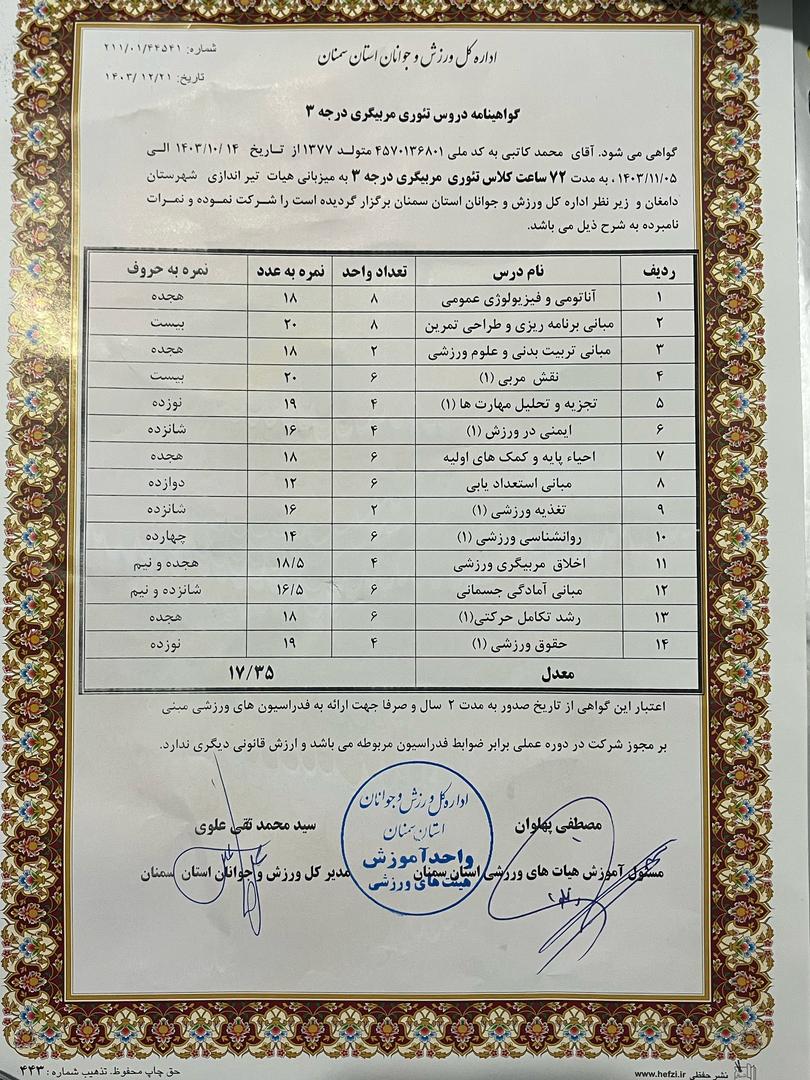 اداره کل ورزش و جوانان استان سمنان
شماره: ۲۱۱/۰۱/۴۴۵۴۱
تاریخ: ۱۴۰۳/۱۲/۲۱
گواهینامه دروس تئوری مربیگری درجه ۳
گواهی می شود. آقای محمد کاتبی به کد ملی ۴۵۷۰۱۳۶۸۰۱ متولد ۱۳۷۷ از تاریخ ۱۴۰۳/۱۰/۱۴ الی
۱۴۰۳/۱۱/۰۵ ، به مدت ۷۲ ساعت کلاس تئوری مربیگری درجه ۳ به میزبانی هیات تیر اندازی شهرستان
دامغان و زیر نظر اداره کل ورزش و جوانان استان سمنان برگزار گردیده است را شرکت نموده و نمرات
نامبرده به شرح ذیل می باشد.
ردیف نام درس تعداد واحد نمره به عدد نمره به حروف
۱ آناتومی و فیزیولوژی عمومی ۸ ۱۸ هجده
۲ مبانی برنامه ریزی و طراحی تمرین ۸ ۲۰ بیست
۳ مبانی تربیت بدنی و علوم ورزشی ۲ ۱۸ هجده
۴ نقش مربی (۱) ۶ ۲۰ بیست
۵ تجزیه و تحلیل مهارت ها (۱) ۴ ۱۹ نوزده
۶ ایمنی در ورزش (۱) ۴ ۱۶ شانزده
۷ احیاء پایه و کمک های اولیه ۶ ۱۸ هجده
۸ مبانی استعداد یابی ۶ ۱۲ دوازده
۹ تغذیه ورزشی (۱) ۲ ۱۶ شانزده
۱۰ روانشناسی ورزشی (۱) ۶ ۱۴ چهارده
۱۱ اخلاق مربیگری ورزشی ۴ ۱۸/۵ هجده و نیم
۱۲ مبانی آمادگی جسمانی ۶ ۱۶/۵ شانزده و نیم
۱۳ رشد تکامل حرکتی(۱) ۶ ۱۸ هجده
۱۴ حقوق ورزشی (۱) ۴ ۱۹ نوزده
معدل ۱۷/۳۵
اعتبار این گواهی از تاریخ صدور به مدت ۲ سال و صرفا جهت ارائه به فدراسیون های ورزشی مبنی
بر مجوز شرکت در دوره عملی برابر ضوابط فدراسیون مربوطه می باشد و ارزش قانونی دیگری ندارد.
مصطفی پهلوان
مسئول آموزش هیات های ورزشی استان سمنان
اداره کل ورزش و جوانان
استان سمنان
واحد آموزش
هیئت های ورزشی
سید محمد تقی علوی
مدیر کل ورزش و جوانان استان سمنان
نشر حفظی www.hefzi.ir
حق چاپ محفوظ. تذهیب شماره: ۴۴۳